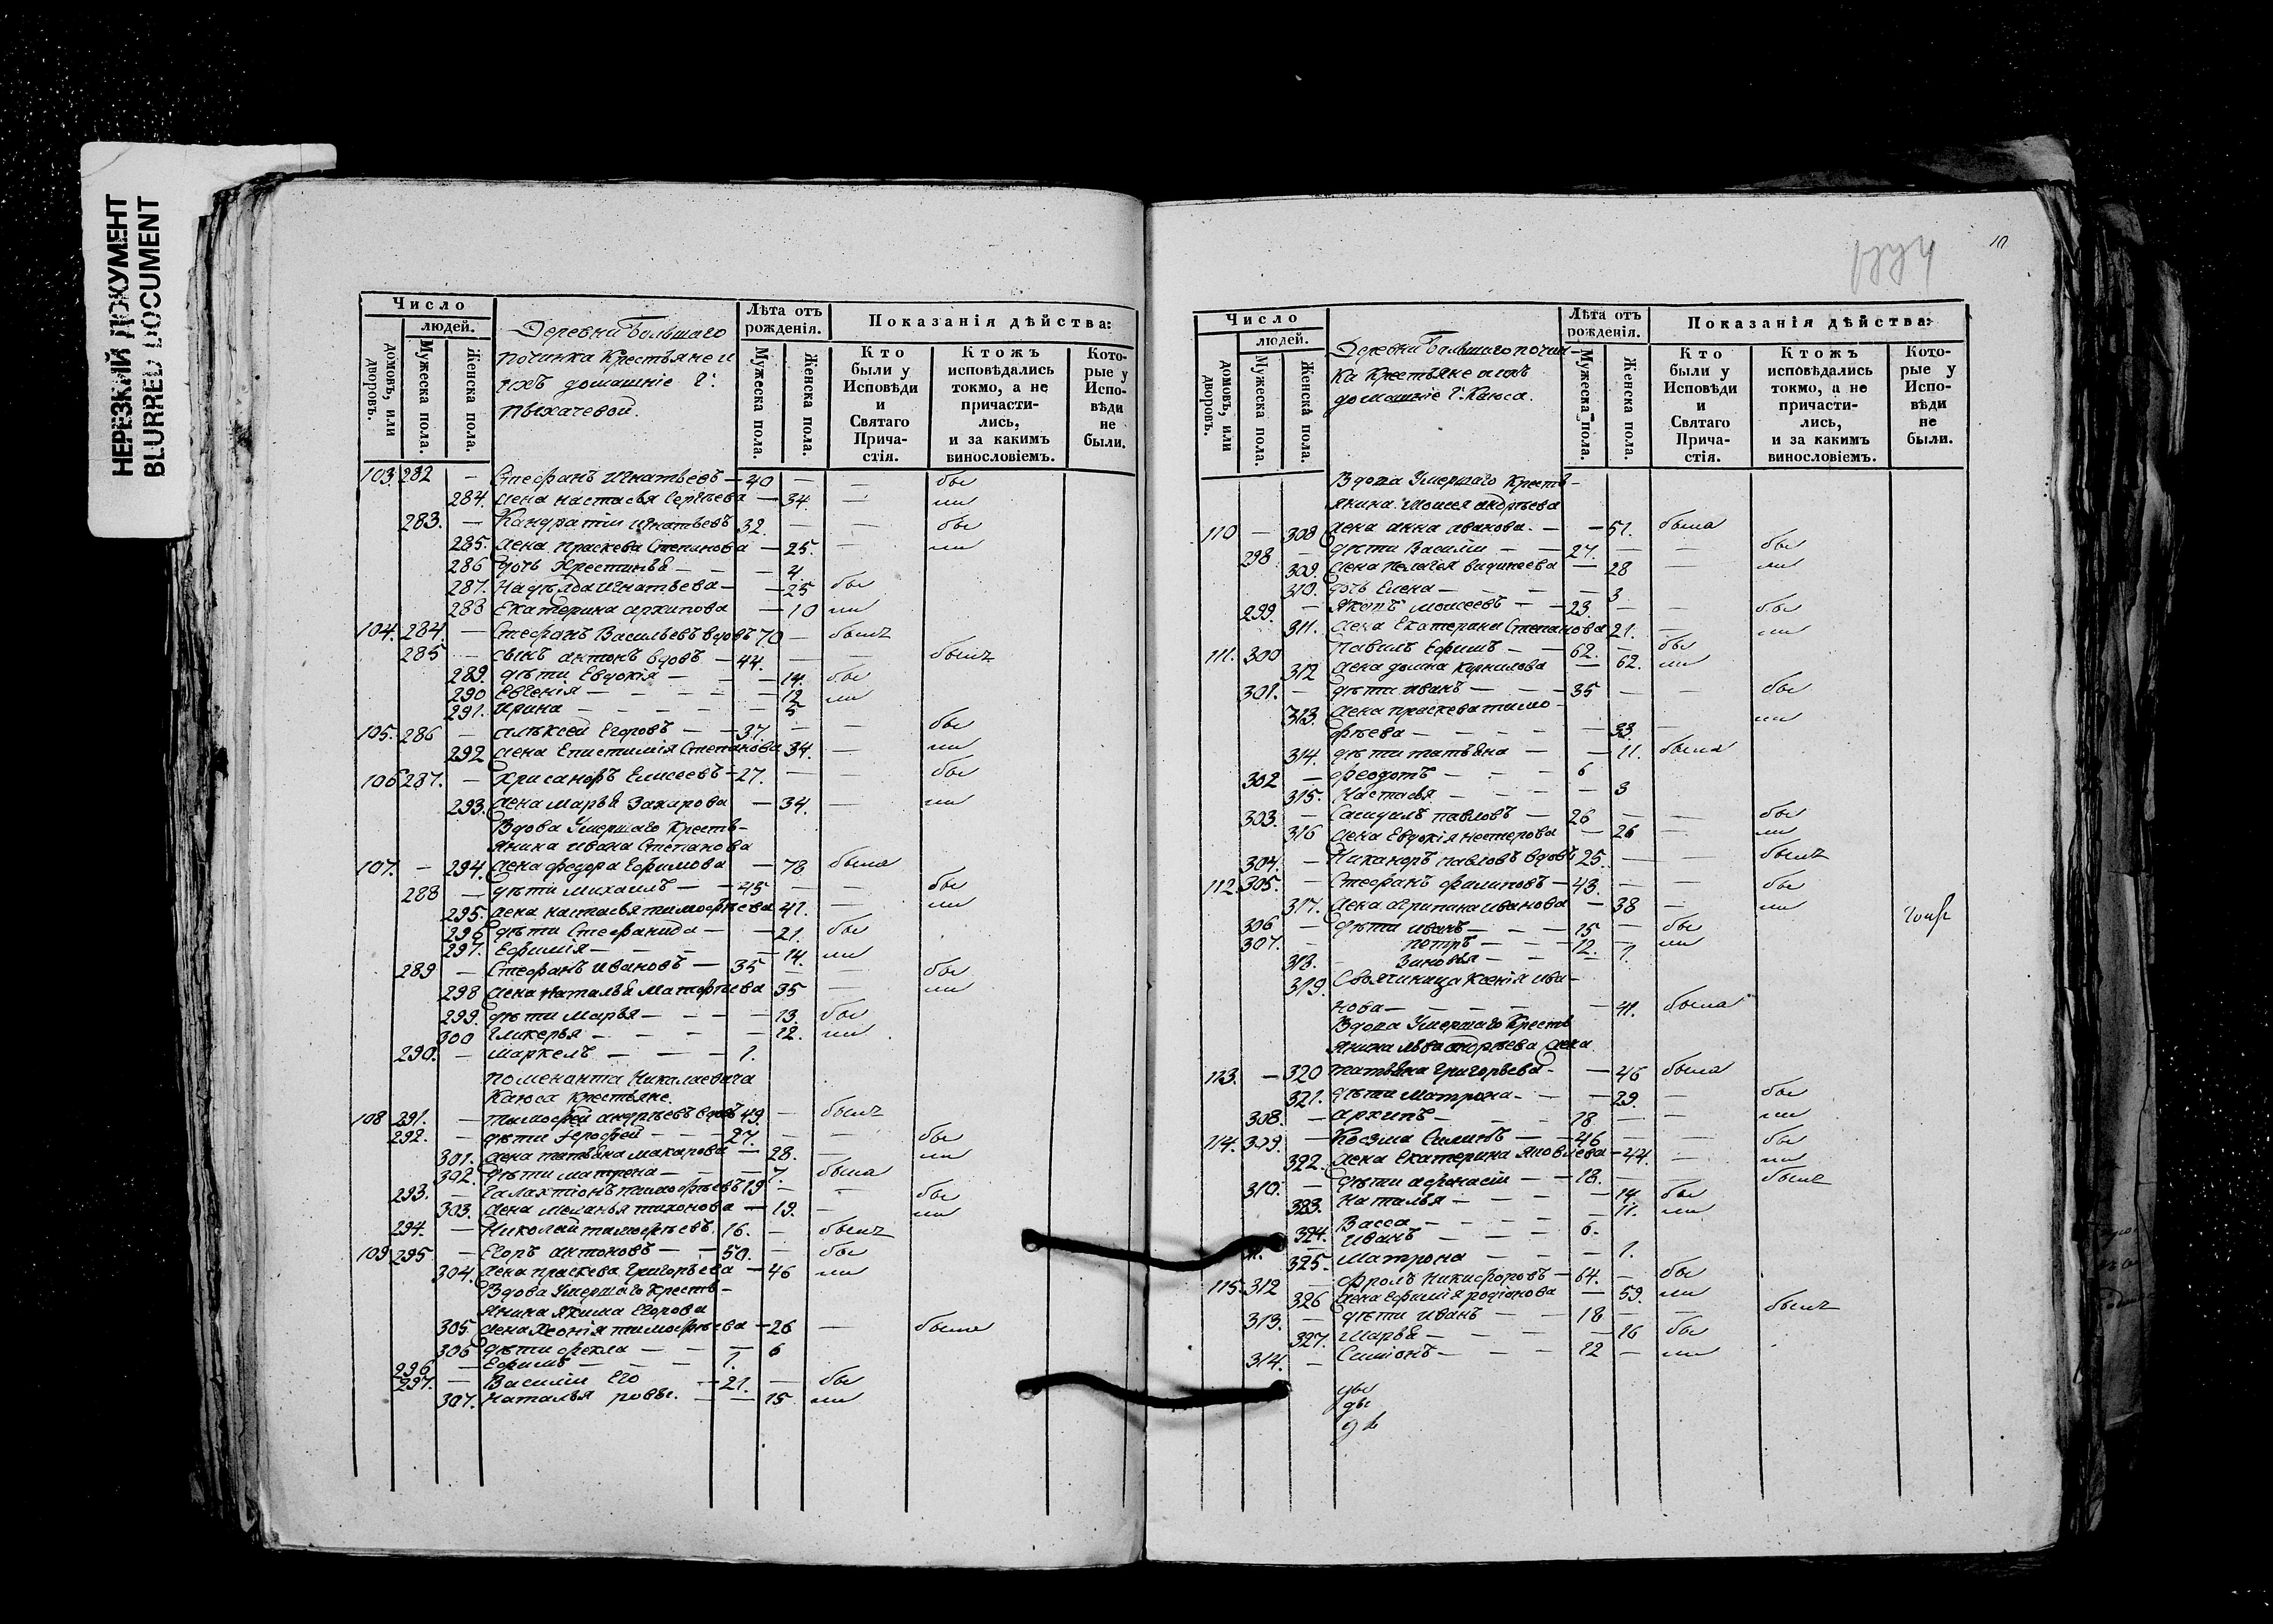 НЕРЕЗКИЙ ДОКУМЕНТ
BLURRED DOCUMENT
Число
людей.
домовъ, или дворовъ.
Мужеска пола.
Женска пола.
Деревни Большаго
починка Крестьяне и
ихъ домашніе Г:
Пыхачевой.
Лѣта отъ рожденія.
Мужеска пола.
Женска пола.
Показанія дѣйства:
Кто были у Исповѣди и Святаго Прича-стія.
Ктожъ исповѣдались токмо, а не причасти-лись, и за какимъ винословіемъ.
Кото-рые у Испо-вѣди не были.
103. 282 — Стефанъ Игнатьевъ — 40 — — бы
284. жена Настасья Сергѣева — 34. — ли
283. — Кандратіи Игнатьевъ 32. — — бы
285. жена Праскева Степанова — 25. — ли
286 дочь Хрестинья — — — 4
287. Надѣжда Игнатьева — — 25 бы
288 Екатерина Архипова — 10 ли
104. 284. — Стефанъ Васильевъ вдовъ 70 — былъ
285 — сынъ Антонъ вдовъ — 44. — — былъ
289. дѣти Евдокія — — — 14. бы
290 Евгенія — — — — 12 ли
291. Ирина — — — — — 5
105. 286 — Алѣксей Егоровъ — — 37. — — бы
292 жена Епистимія Степанова 34. — ли
106 287. — Хрисанфъ Елисеевъ — 27. — бы
293. жена Марья Захарова — 34. — ли
Вдова Умершаго Кресть-
янина Ивана Степанова
107. — 294. жена Федора Ефимова — 78 была
288 — дѣти Михаилъ — — 45 — — бы
295. жена Настасья Тимофѣева 41. — ли
296 дѣти Стефанида — — 21. бы
297. Ефимія — — — 14. ли
289 — Стефанъ Ивановъ — 35 — — бы
298 жена Наталья Матфѣева 35 — ли
299. дѣти Марья — — — — 13. бы
300 Гликерья — — — — 12. ли
290. — Маркелъ — — — 1.
Николаевича
Каюса Крестьяне.
108 291. — Тимофей Андрѣевъ вдовъ 49. — былъ
292. — дѣти — — 27. — — бы
301. жена Татьяна Макарова — 28. — ли
302. дѣти Матрена — — — 7. была
293. — Галахтіонъ Тимофѣевъ 19 — — бы
303. жена Меланья Тихонова — 19. — ли
294. — Николай Тимофѣевъ 16. — былъ
109 295 — Егоръ Антоновъ — — 50. — бы
304. жена Праскева Григорьева — 46 ли
Вдова Умершаго Кресть-
янина Якима Егорова
305. жена Тимофѣева — 26 — была
306 дѣти Фекла — — — 6
296 — Ефимъ — — — 1.
297. — Василіи Его — 21. — бы
307. Наталья — — 15 ли
10
Число
людей.
домовъ, или дворовъ.
Мужеска пола.
Женска пола.
Деревни Большаго почин-
ка Крестьяне и ихъ
домашніе Г. Каюса.
Лѣта отъ рожденія.
Мужеска пола.
Женска пола.
Показанія дѣйства:
Кто были у Исповѣди и Святаго Прича-стія.
Ктожъ исповѣдались токмо, а не причасти-лись, и за какимъ винословіемъ.
Кото-рые у Испо-вѣди не были.
Вдова Умершаго Кресть-
янина Моисея Андрѣева
110 — 308 жена Анна — — 51. была
298 — дѣти Василіи — — 27. — — бы
309. жена Пелагея — 28 — ли
310. дочь Елена — — — — 3
299. — Моисеевъ — — 23. — — бы
311. жена Екатерина Степанова 21. — ли
111. 300 Павилъ Ефимъ — — 62. — бы
312 жена Корнилова — 62. ли
301. — дѣти Иванъ — — — 35 — — бы
313. жена Праскева Тимо-
фѣева — — — — — 33. — ли
314. дѣти Татьяна — — 11. была
302 — Феодотъ — — — 6
315. Настасья — — — — 3
303. — Самуилъ Павловъ — 26 — — бы
316 жена Евдокія Нестерова — 26 — ли
304. — Никаноръ Павловъ вдовъ 25. — — былъ
112. 305. — Стефанъ Филиповъ — 43. — — бы
317. жена Агрипина Иванова — 38 — ли
306 — дѣти Иванъ — — — 15 — бы
307. — Петръ — — — 12. — ли
318. — Зиновья — — — 1.
319. Своячиница Ксенія Ива-
нова — — — — — 41. была
Вдова Умершаго Кресть
янина Льва Андрѣева жена
113. — 320 Татьяна Григорьева — — 46 была
321. дѣти Матрона — — — 29. — бы
308. — Архипъ — — 18 — — ли
114. 309. — Косма — — 46 — — бы
322. жена Екатерина Яковлева — 44. — ли
310. — дѣти Афанасіи — — 18. — — былъ
323. Наталья — — — — 14. бы
324. Васса — — — — 11. ли
Иванъ — — — 6.
325. Матрона — — — 1.
115. 312 — Фролъ Никифоровъ — 64. — бы
326 жена Ефимія Родіонова — 59. ли
313. — дѣти Иванъ — — 18 — — былъ
327. Марья — — — — 16 бы
314. — Симіонъ — — — 12 — ли